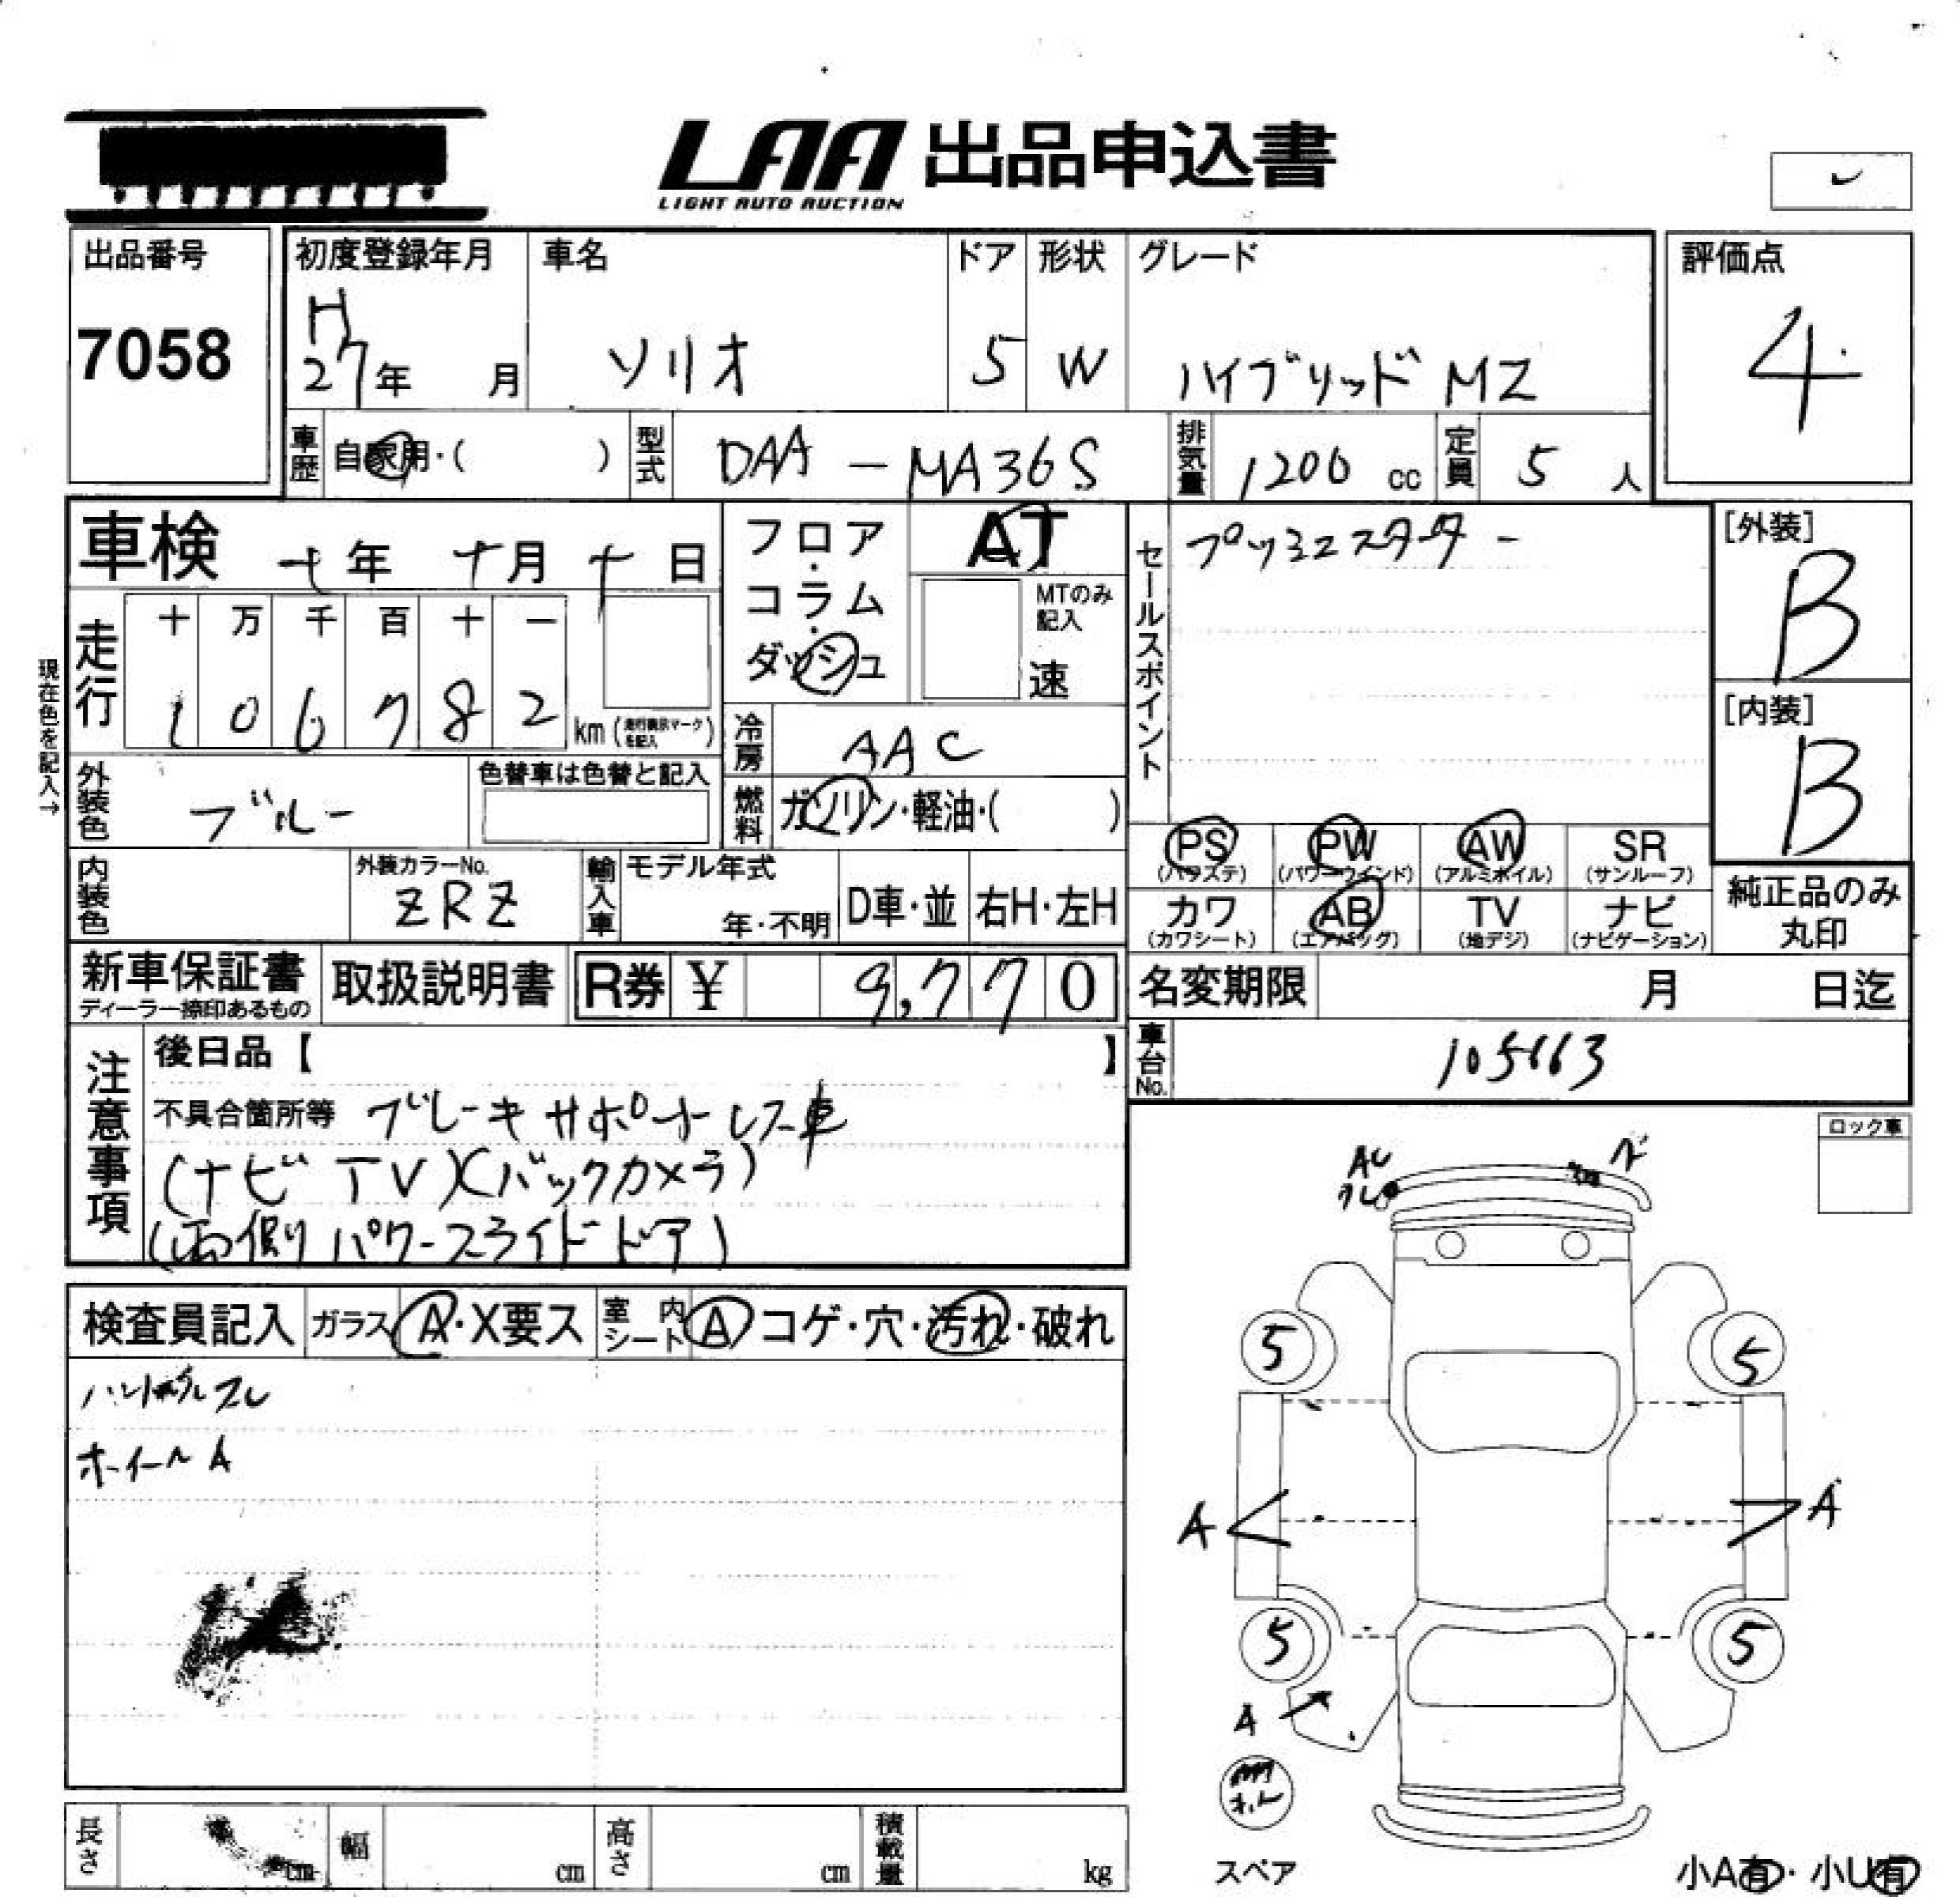 LAA 出品申込書
LIGHT AUTO AUCTION
出品番号
7058
初度登録年月
H
27年 月
車名
ソリオ
ドア
5
形状
W
グレード
ハイブリッド MZ
評価点
4
車歴 自家用・( )
型式 DAA - MA36S
排気量 1200 cc
定員 5 人
車検 年 月 日
フロア・コラム・ダッシュ
AT
MTのみ記入
速
走行
十 万 千 百 十 一
1 0 6 7 8 2 km (走行表示マークを記入)
現在色を記入→
冷房 AAC
燃料 ガソリン・軽油・( )
外装色 ブルー
色替車は色替と記入
内装色
外装カラーNo.
ZRZ
輸入車
モデル年式
年・不明
D車・並
右H・左H
セールスポイント
プッシュスターター
[外装]
B
[内装]
B
PS (パワステ)
PW (パワーウインド)
AW (アルミホイル)
SR (サンルーフ)
カワ (カワシート)
AB (エアバッグ)
TV (地デジ)
ナビ (ナビゲーション)
純正品のみ丸印
新車保証書
ディーラー捺印あるもの
取扱説明書
R券 ¥ 9,770
名変期限 月 日迄
車台No. 105663
注意事項
後日品【 】
不具合箇所等 ブレーキサポートレス車
(ナビ TV)(バックカメラ)
(両側パワースライドドア)
ロック車
検査員記入
ガラス A・X要ス
室内シート A コゲ・穴・汚れ・破れ
ハンドルスレ
ホイールA
5
5
A
A
5
5
A
スペア
小A有・小U有
長さ cm
幅 cm
高さ cm
積載量 kg